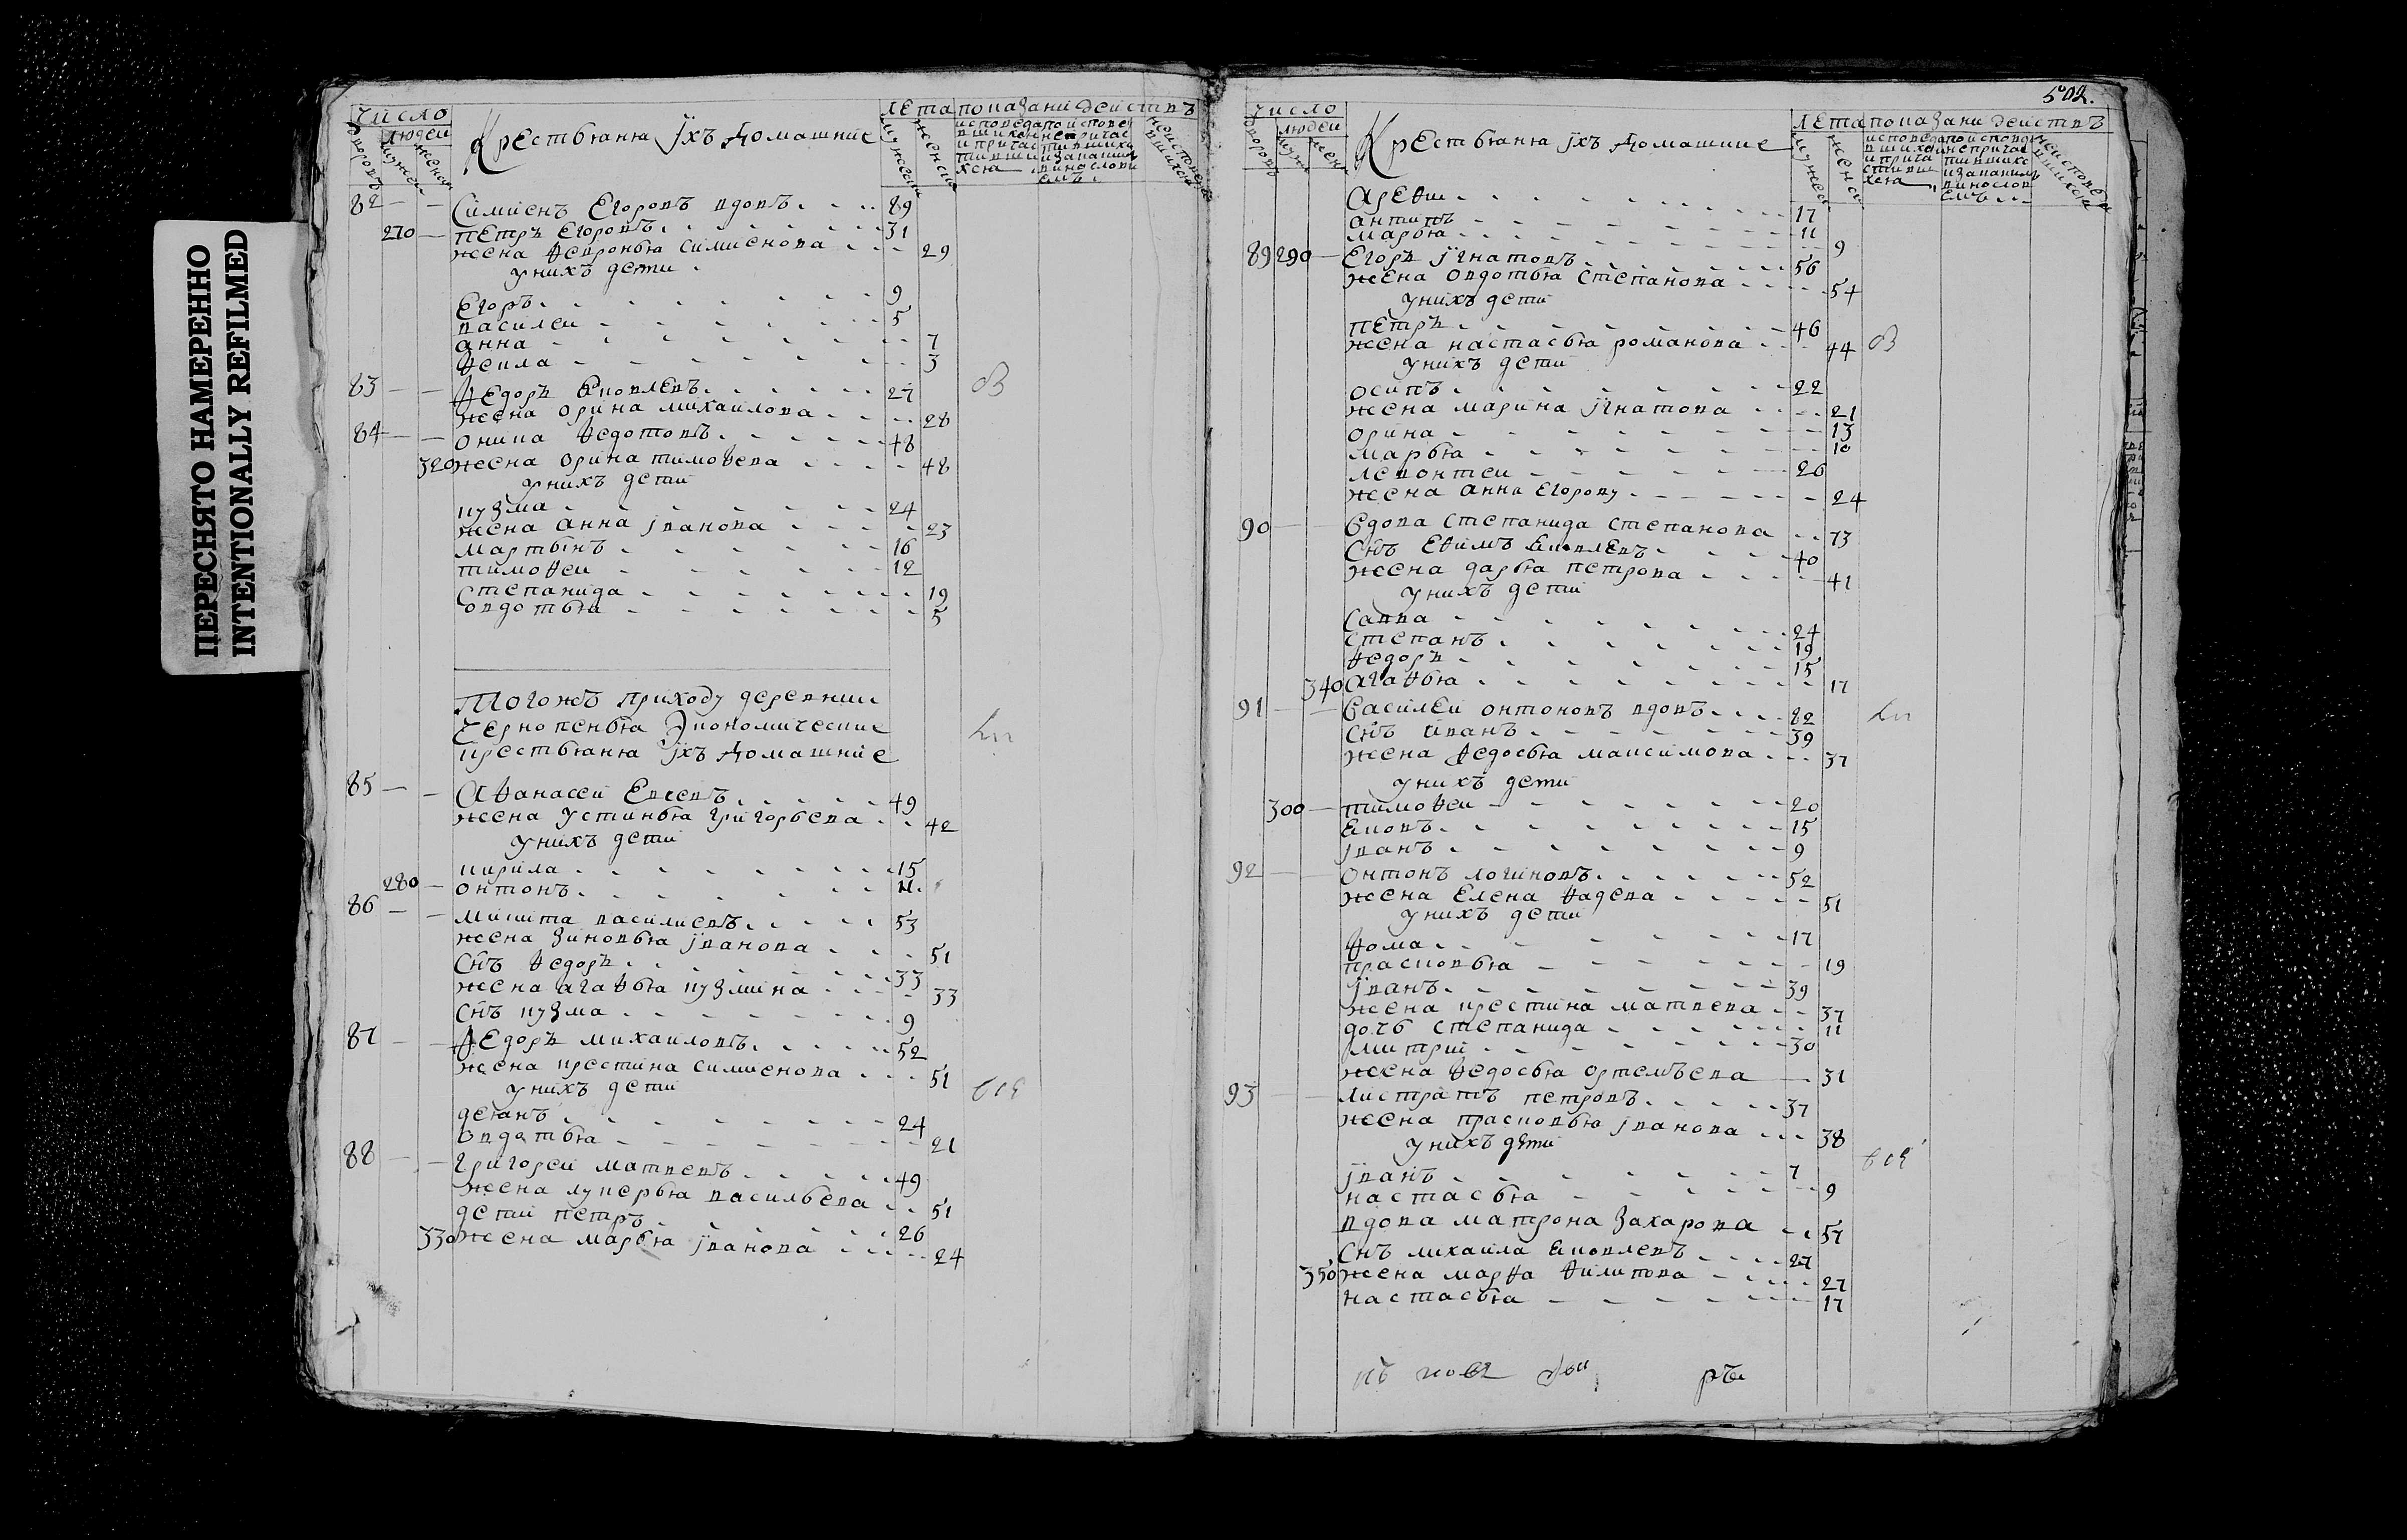 ПЕРЕСНЯТО НАМЕРЕННО
INTENTIONALLY REFILMED
число
людеи
Крестьяня Ӱхъ домашние
лета показани действъ
82 — — Симионъ Егоровъ вдовъ 89
270 — Петръ Егоровъ 31
жена Ѳевронья симионова 29
у нихъ дети
Егоръ 9
василеи 5
анна 7
Ѳекла 3
83 — — Ѳедоръ Яковлевъ 27
жена орина михаилова 28
84 — — оника Ѳедотовъ 48
320 жена орина тимоѳеева 48
у нихъ дети
кузма 24
жена анна ӱванова 23
мартынъ 16
тимоѳеи 12
степанида 19
овдотья 5
Тогожъ приходу деревнии
Чернопенья Экономические
крестьяня ӱхъ домашние
85 — — Аѳанасеи Евсевъ 49
жена устинья григорьева 42
у нихъ дети
кирила 15
280 — онтонъ 11
86 — — микита василиевъ 53
жена зиновья ӱванова 51
снъ Ѳедоръ 33
жена агаѳья кузмина 33
снъ кузма 9
87 — — Ѳедоръ михаиловъ 52
жена крестина симионова 51
у нихъ дети
деянъ 24
овдотья 21
88 — — Григореи матвеевъ 49
жена лукерья васильева 51
дети петръ 26
330 жена марья ӱванова 24
502.
число
людеи
Крестьяня ӱхъ домашние
лета показани действъ
Арефи 17
антипъ 11
марья 9
89 290 — Егоръ ӱгнатовъ 56
жена овдотья степанова 54
у нихъ дети
петръ 46
жена настасья романова 44
у нихъ дети
осипъ 22
жена марина ӱгнатова 21
орина 13
марья 10
левонтеи 26
жена анна Егорову 24
90 — — Вдова степанида степанова 73
снъ Ефимъ Яковлевъ 40
жена дарья петрова 41
у нихъ дети
Савва 24
степанъ 19
Ѳедоръ 15
340 агаѳья 17
91 — — Василеи онтоновъ вдовъ 82
снъ иванъ 39
жена Ѳедосья максимова 37
у нихъ дети
300 — тимоѳеи 20
Яковъ 15
ӱванъ 9
92 — — Онтонъ логиновъ 52
жена Елена Ѳадеева 51
у нихъ дети
Ѳома 17
прасковья 19
ӱванъ 39
жена крестина матвеева 37
дочь степанида 11
митрии 30
жена Ѳедосья ортемъева 31
93 — — листратъ петровъ 37
жена прасковья ӱванова 38
у нихъ дети
ӱванъ 7
настасья 9
вдова матрона захарова 57
снъ михаила Яковлевъ 27
350 жена марѳа Ѳилипова 27
настасья 17